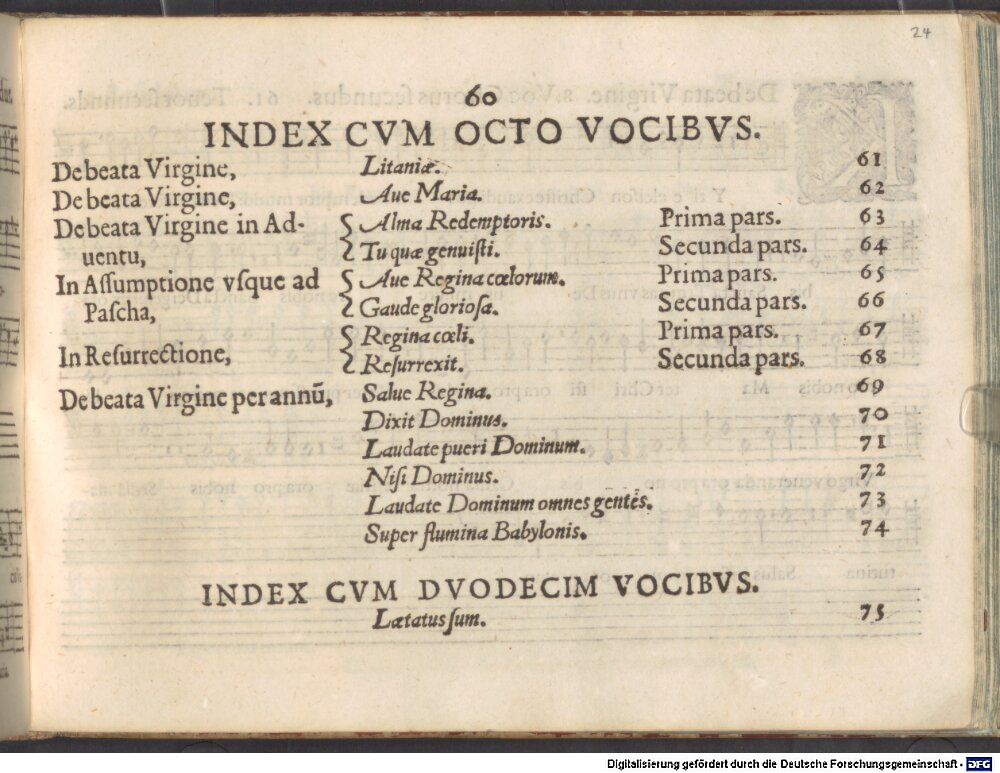 24
60
INDEX CVM OCTO VOCIBVS.
De beata Virgine, Litaniæ. 61
De beata Virgine, Aue Maria. 62
De beata Virgine in Ad- Alma Redemptoris. Prima pars. 63
uentu, Tu quæ genuiſti. Secunda pars. 64
In Aſſumptione vſque ad Aue Regina cœlorum. Prima pars. 65
Paſcha, Gaude glorioſa. Secunda pars. 66
Regina cœli. Prima pars. 67
In Reſurrectione, Reſurrexit. Secunda pars. 68
De beata Virgine per annū, Salue Regina. 69
Dixit Dominus. 70
Laudate pueri Dominum. 71
Niſi Dominus. 72
Laudate Dominum omnes gentes. 73
Super flumina Babylonis. 74
INDEX CVM DVODECIM VOCIBVS.
Lætatus ſum. 75
Digitalisierung gefördert durch die Deutsche Forschungsgemeinschaft - DFG